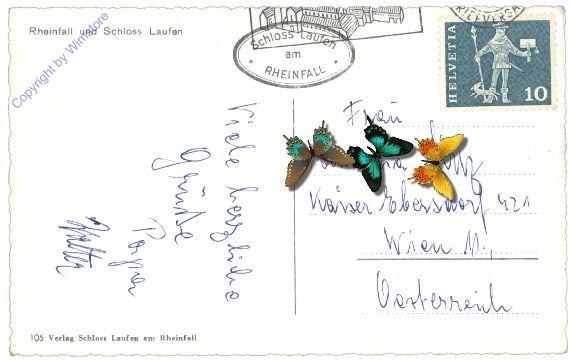 Rheinfall und Schloss Laufen
Copyright by Winstore
Schloss Laufen
am
RHEINFALL
HELVETIA
10
Viele herzliche
Grüße
Papa
Frau
Kaiser Ebersdorf 421
Wien 11.,
Oesterreich
105 Verlag Schloss Laufen am Rheinfall